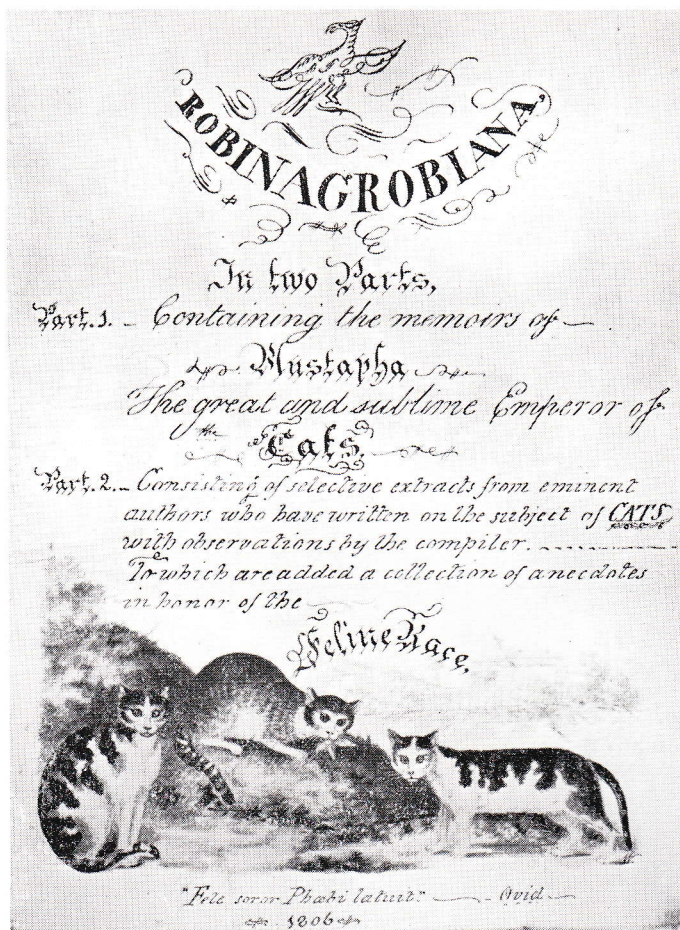 ROBINAGROBIANA.
In two Parts,
Part. 1. – Containing the memoirs of –
Mustapha
The great and sublime Emperor of
the
Cats.
Part. 2. – Consisting of selective extracts from eminent
authors who have written on the subject of CATS
with observations by the compiler.
To which are added a collection of anecdotes
in honor of the
Feline Race.
"Fele soror Phœbi latuit." – Ovid –
1806